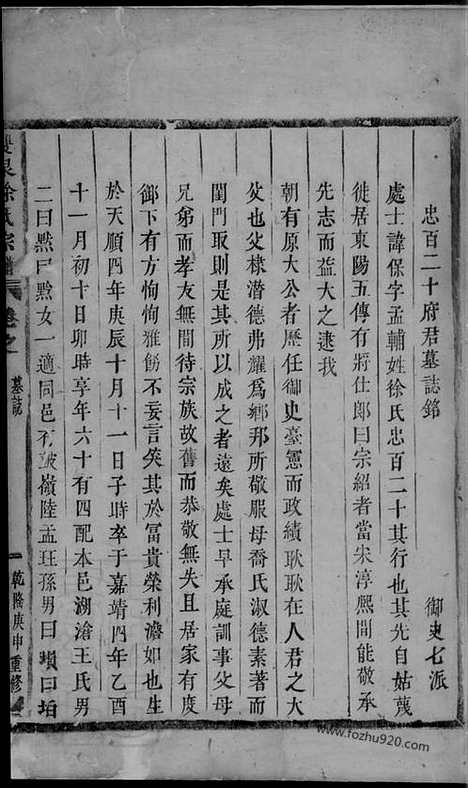 忠百二十府君墓誌銘　御史七派
處士諱保字孟輔姓徐氏忠百二十其行也其先自姑蔑
徙居東陽五傳有將仕郎曰宗紹者當宋淳熈間能敬承
先志而益大之逮我
朝有原大公者歷任御史臺憲而政績耿耿在人君之大
父也父棣潜德弗耀爲鄉邦所敬服母喬氏淑德素著而
閨門取則是其所以成之者遠矣處士早承庭訓事父母
兄弟而孝友無間待宗族故舊而恭敬無失且居家有度
御下有方恂恂雅飭不妄言笑其於冨貴榮利澹如也生
於天順四年庚辰十月十一日子時卒于嘉靖四年乙酉
十一月初十日卯時享年六十有四配本邑湖滄王氏男
二曰㸃曰㸃女一適同邑有嶺陸孟玨孫男曰塤曰珀
雙泉徐氏宗譜　卷之　墓誌　一　乾隆庚申重修
www.fozhu920.com